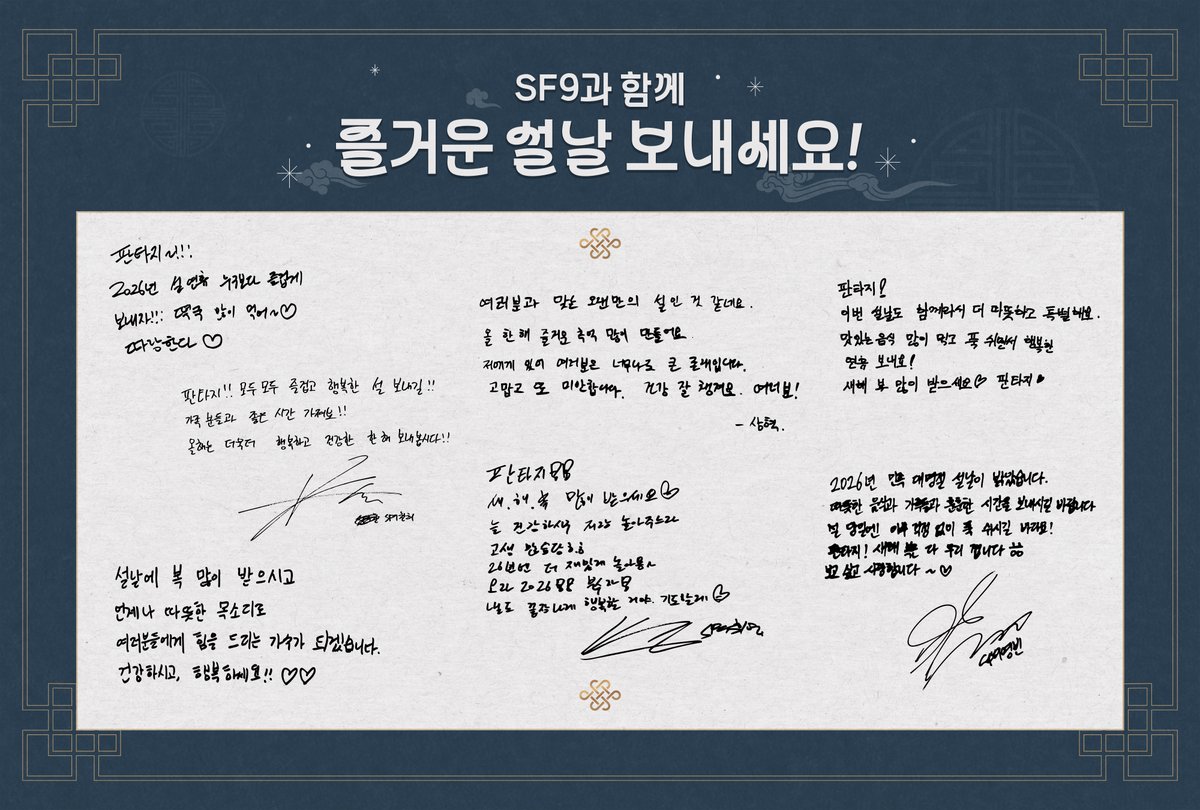 SF9과 함께
즐거운 설날 보내세요!
판타지~!!!
2026년 설 연휴 누구보다 즐겁게
보내자!!! 떡국 많이 먹어~♡
따랑한다 ♡
판타지!! 모두모두 즐겁고 행복한 설 보내길!!
가족분들과 좋은 시간 가져보!!
올해는 더욱더 행복하고 건강한 한 해 보내봅시다!!
설날에 복 많이 받으시고
언제나 따뜻한 목소리로
여러분들에게 힘을 드리는 가수가 되겠습니다.
건강하시고, 행복하세요!! ♡♡
여러분과 맞는 오랜만의 설인 것 같네요.
올 한 해 즐거운 추억 많이 만들어요.
저에게 있어 여러분은 너무나도 큰 존재입니다.
고맙고 또 미안합니다. 건강 잘 챙겨요. 여러분!
- 상혁.
판타지
새.해.복 많이 받으세요♡
늘 건강하시구 저랑 놀아주느라
고생
26년엔 더 재밌게 놀아봅시
2026
행복한 거야. 기도할게♡
판타지!
이번 설날도 함께라서 더 따뜻하고 특별해요.
맛있는 음식 많이 먹고 푹 쉬면서 행복한
연휴 보내요!
새해 복 많이 받으세요♡ 판타지♥
2026년 민족 대명절 설날이 밝았습니다.
따뜻한 음식과 가족들과 훈훈한 시간을 보내시길 바랍니다
설 당일엔 아무 걱정 없이 푹 쉬시길 바라요!
판타지! 새해 복 다 우리 겁니다
보고 싶고 사랑합니다 ~♡
영빈